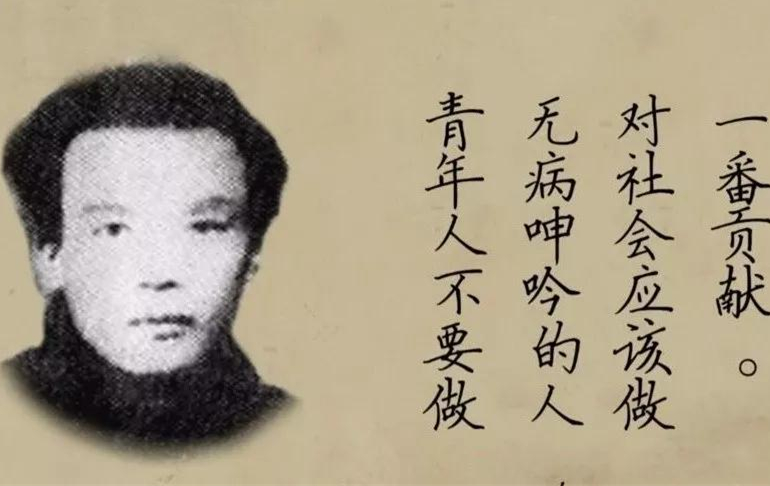 青年人不要做
无病呻吟的人
对社会应该做
一番贡献。